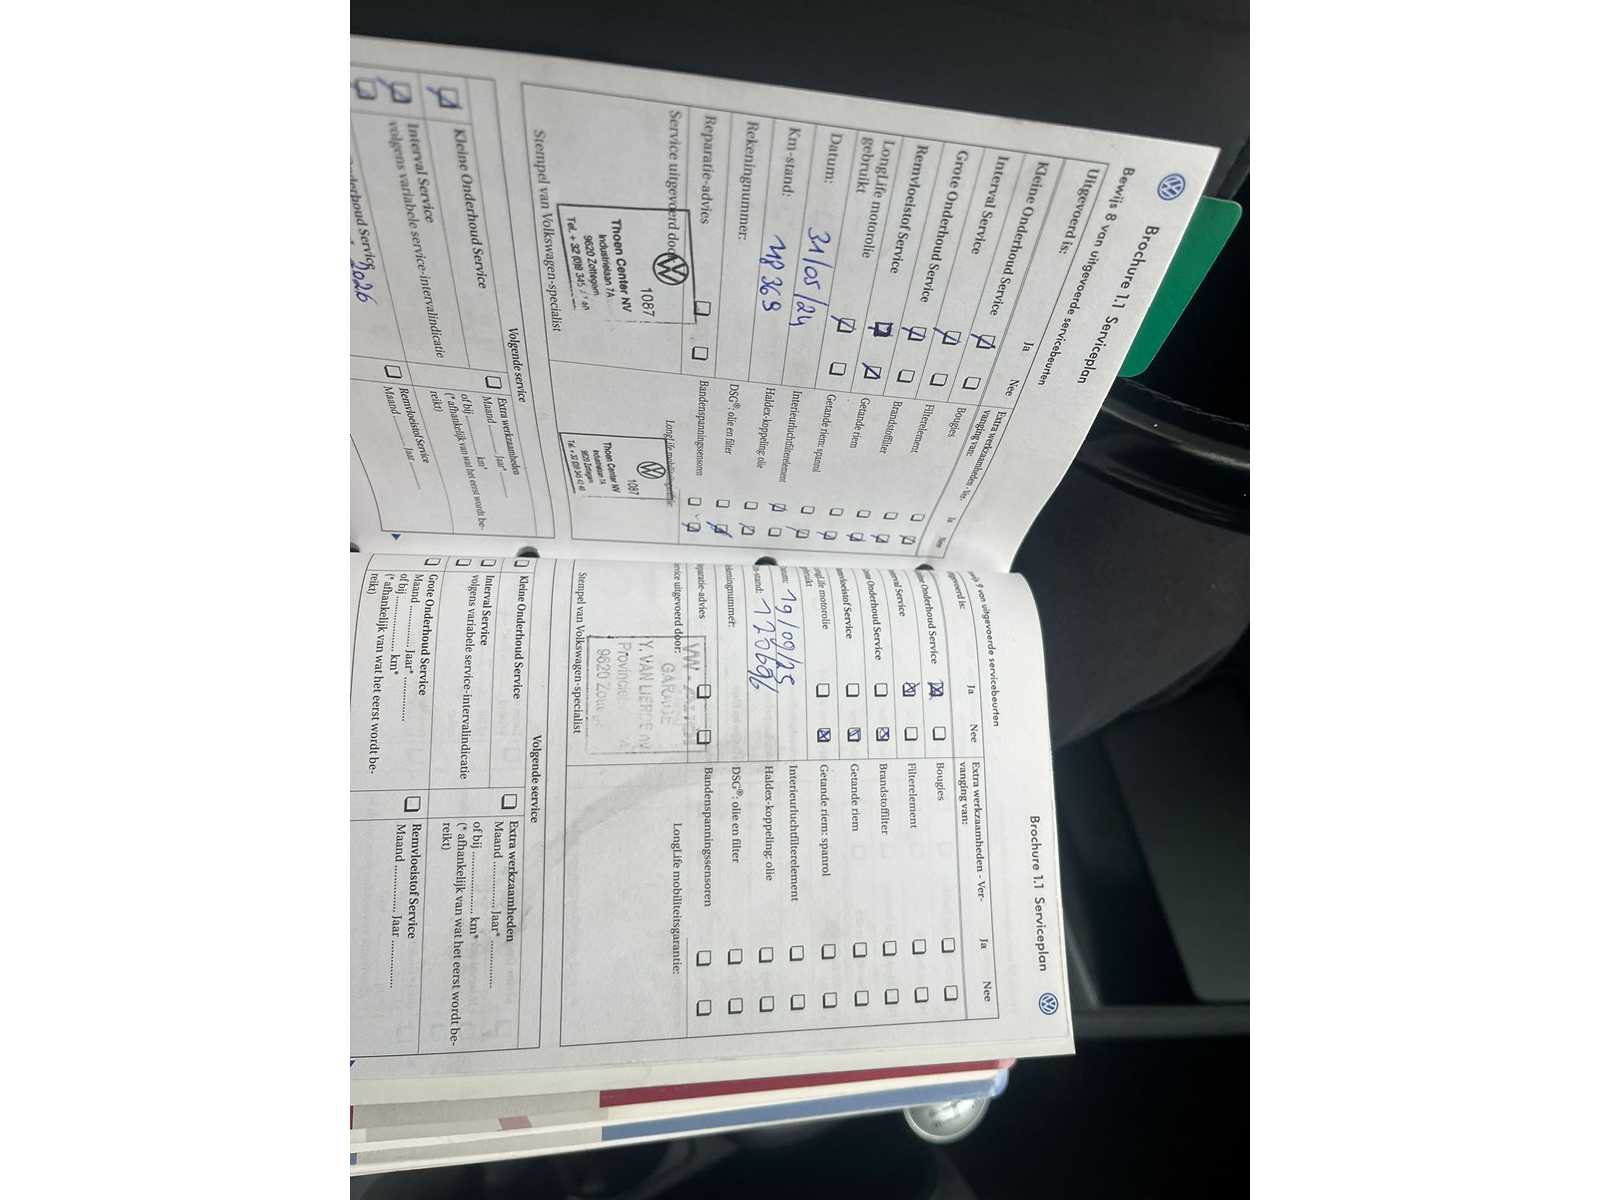 Brochure 1.1 Serviceplan
Bewijs 8 van uitgevoerde servicebeurten
Uitgevoerd is:
Ja
Nee
Kleine Onderhoud Service
Interval Service
Grote Onderhoud Service
Remvloeistof Service
LongLife motorolie
gebruikt
Datum: 31/05/24
Km-stand:
Rekeningnummer:
Reparatie-advies
Service uitgevoerd door:
1087
Thoen Center NV
Industrielaan 1A
9620 Zottegem
Stempel van Volkswagen-specialist
Extra werkzaamheden - Ver-
vanging van:
Ja
Nee
Bougies
Filterelement
Brandstoffilter
Getande riem
Getande riem: spanrol
Interieurluchtfilterelement
Haldex-koppeling: olie
DSG®: olie en filter
Bandenspanningssensoren
1087
Thoen Center NV
Industrielaan 1A
9620 Zottegem
Volgende service
Kleine Onderhoud Service
Interval Service
volgens variabele service-intervalindicatie
Onderhoud Service
2026
Extra werkzaamheden
Maand Jaar*
of bij km*
(* afhankelijk van wat het eerst wordt be-
reikt)
Remvloeistof Service
Maand Jaar
Brochure 1.1 Serviceplan
9 van uitgevoerde servicebeurten
Ja
Nee
Onderhoud Service
Service
Onderhoud Service
Service
motorolie
19/09/25
120696
Stempel van Volkswagen-specialist
GARAGE
Y. VAN LIERDE NV
9620
Extra werkzaamheden - Ver-
vanging van:
Ja
Nee
Bougies
Filterelement
Brandstoffilter
Getande riem
Getande riem: spanrol
Interieurluchtfilterelement
Haldex-koppeling: olie
DSG®: olie en filter
Bandenspanningssensoren
LongLife mobiliteitsgarantie:
Volgende service
Kleine Onderhoud Service
Interval Service
volgens variabele service-intervalindicatie
Grote Onderhoud Service
Maand ............ Jaar* ............
of bij ............ km*
(* afhankelijk van wat het eerst wordt be-
reikt)
Extra werkzaamheden
Maand ............ Jaar* ............
of bij ............ km*
(* afhankelijk van wat het eerst wordt be-
reikt)
Remvloeistof Service
Maand ............ Jaar ............